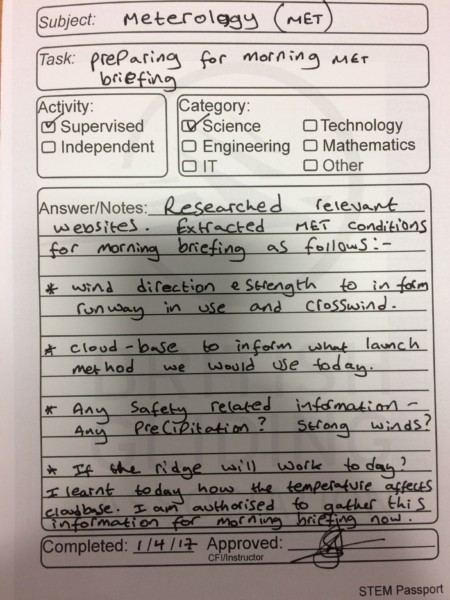 Subject: Meterology (MET)
Task: preparing for morning MET
briefing
Activity:
Supervised
Independent
Category:
Science
Engineering
IT
Technology
Mathematics
Other
Answer/Notes: Researched relevant
websites. Extracted MET conditions
for morning briefing as follows:-
* wind direction & strength to inform
runway in use and crosswind.
* cloud-base to inform what launch
method we would use today.
* Any safety related information -
Any precipitation? Strong winds?
* If the ridge will work today?
I learnt today how the temperature affects
cloudbase. I am authorised to gather this
information for morning briefing now.
Completed: 1/4/17 Approved:
CFI/Instructor
STEM Passport